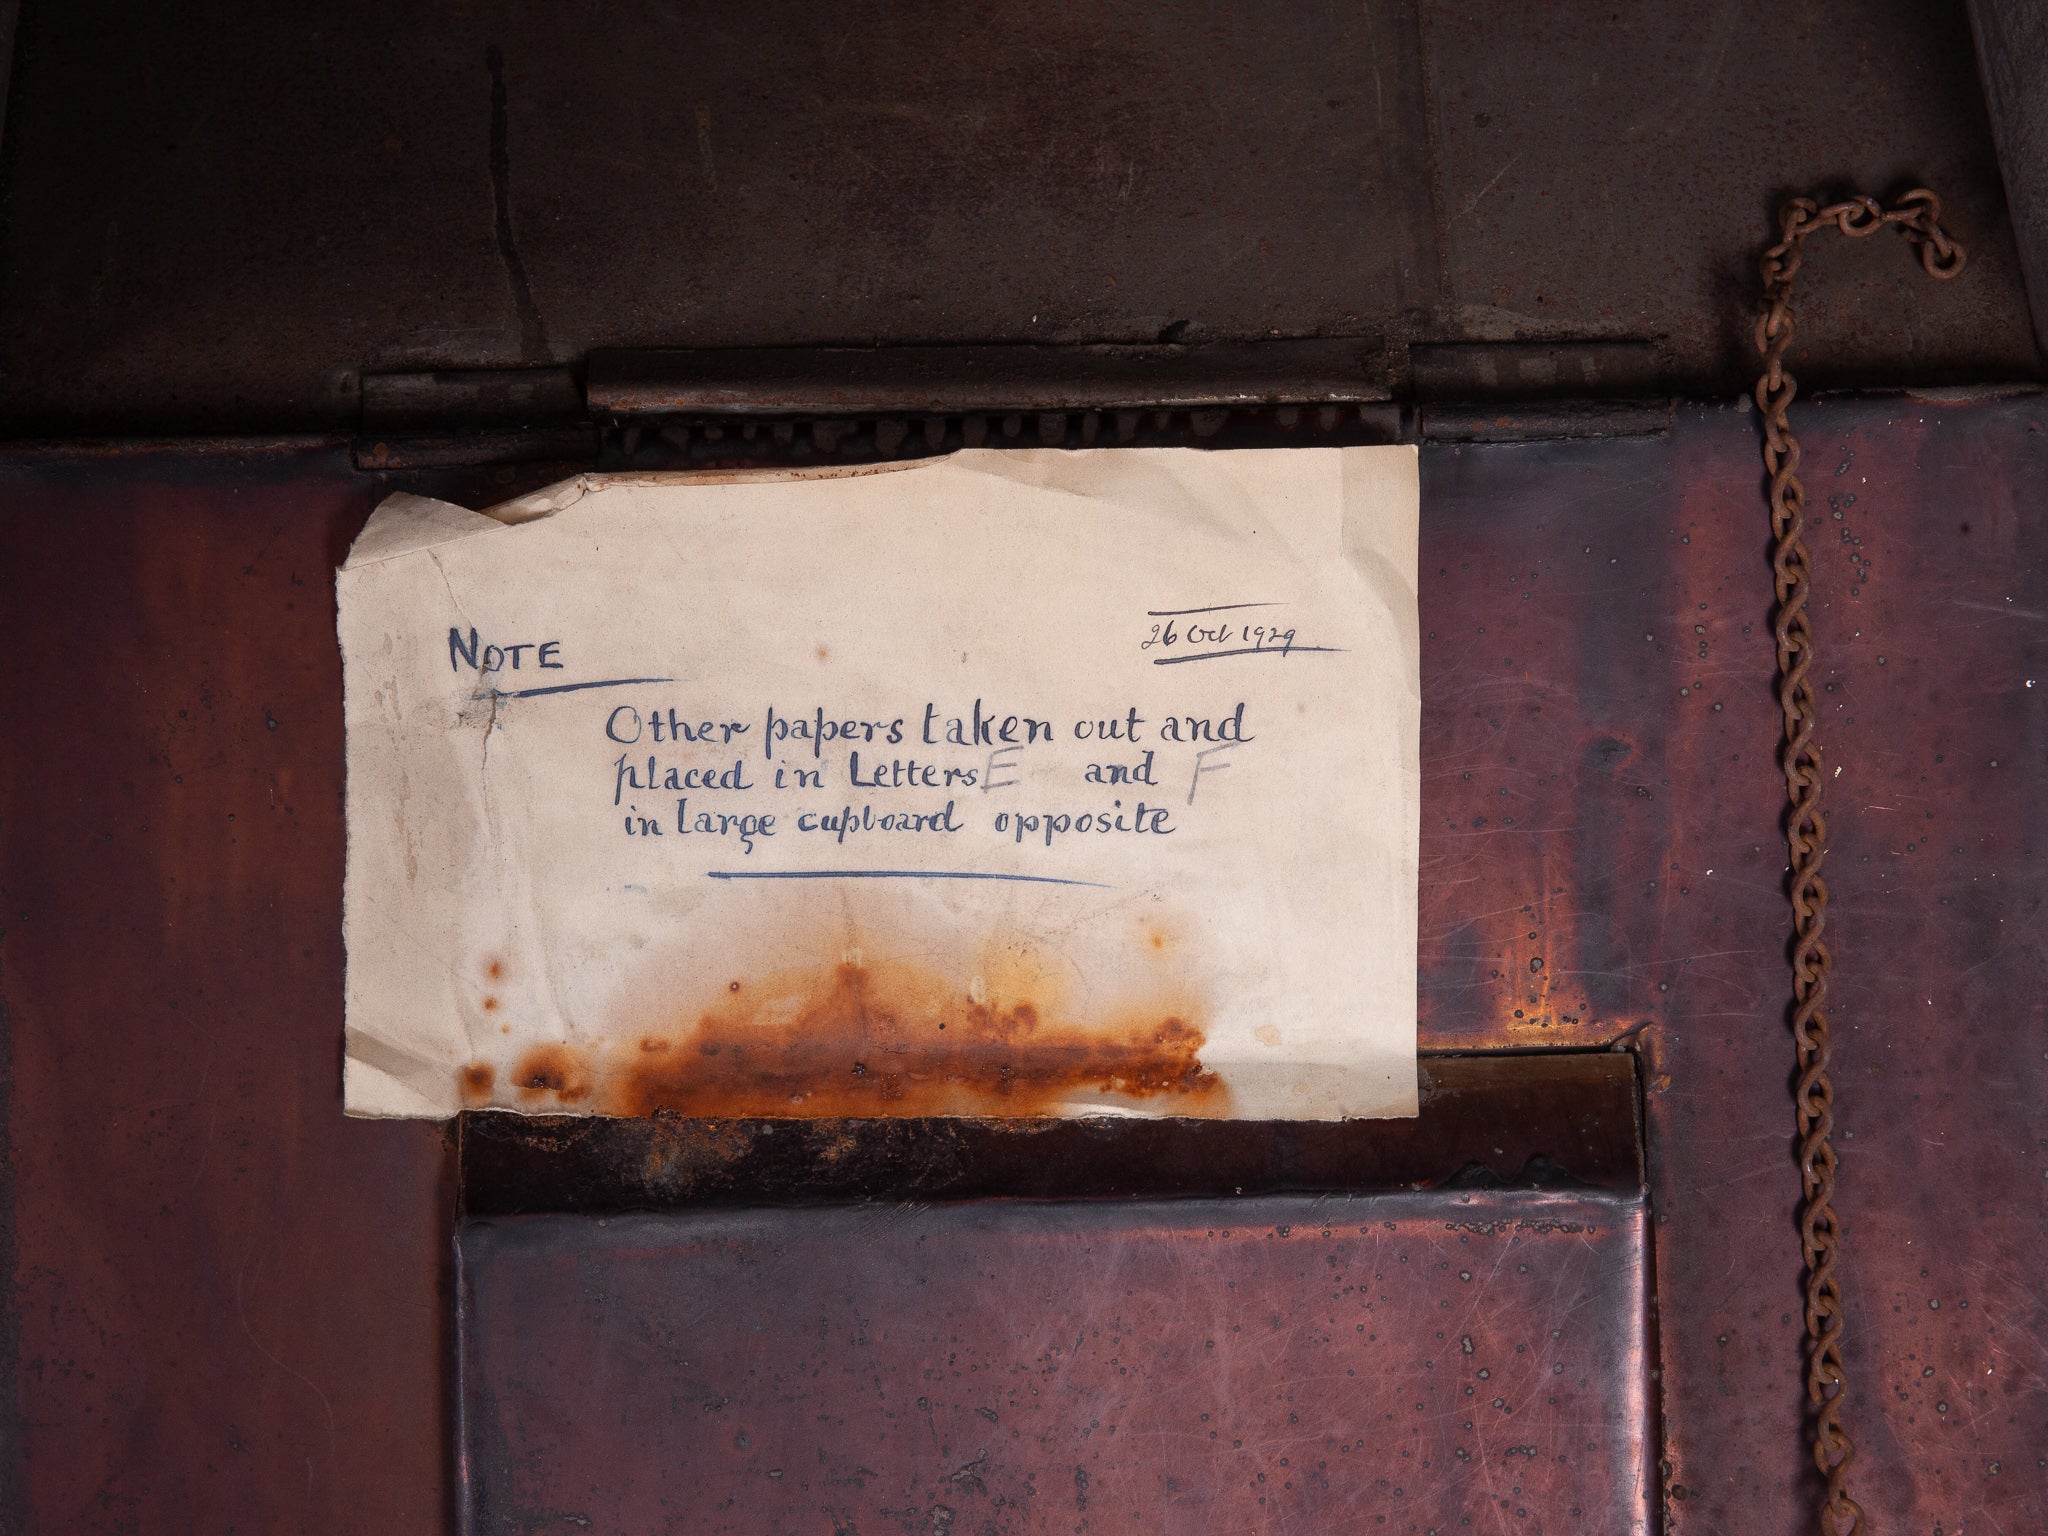 26 Oct 1929
NOTE
Other papers taken out and
placed in Letters E and F
in large cupboard opposite